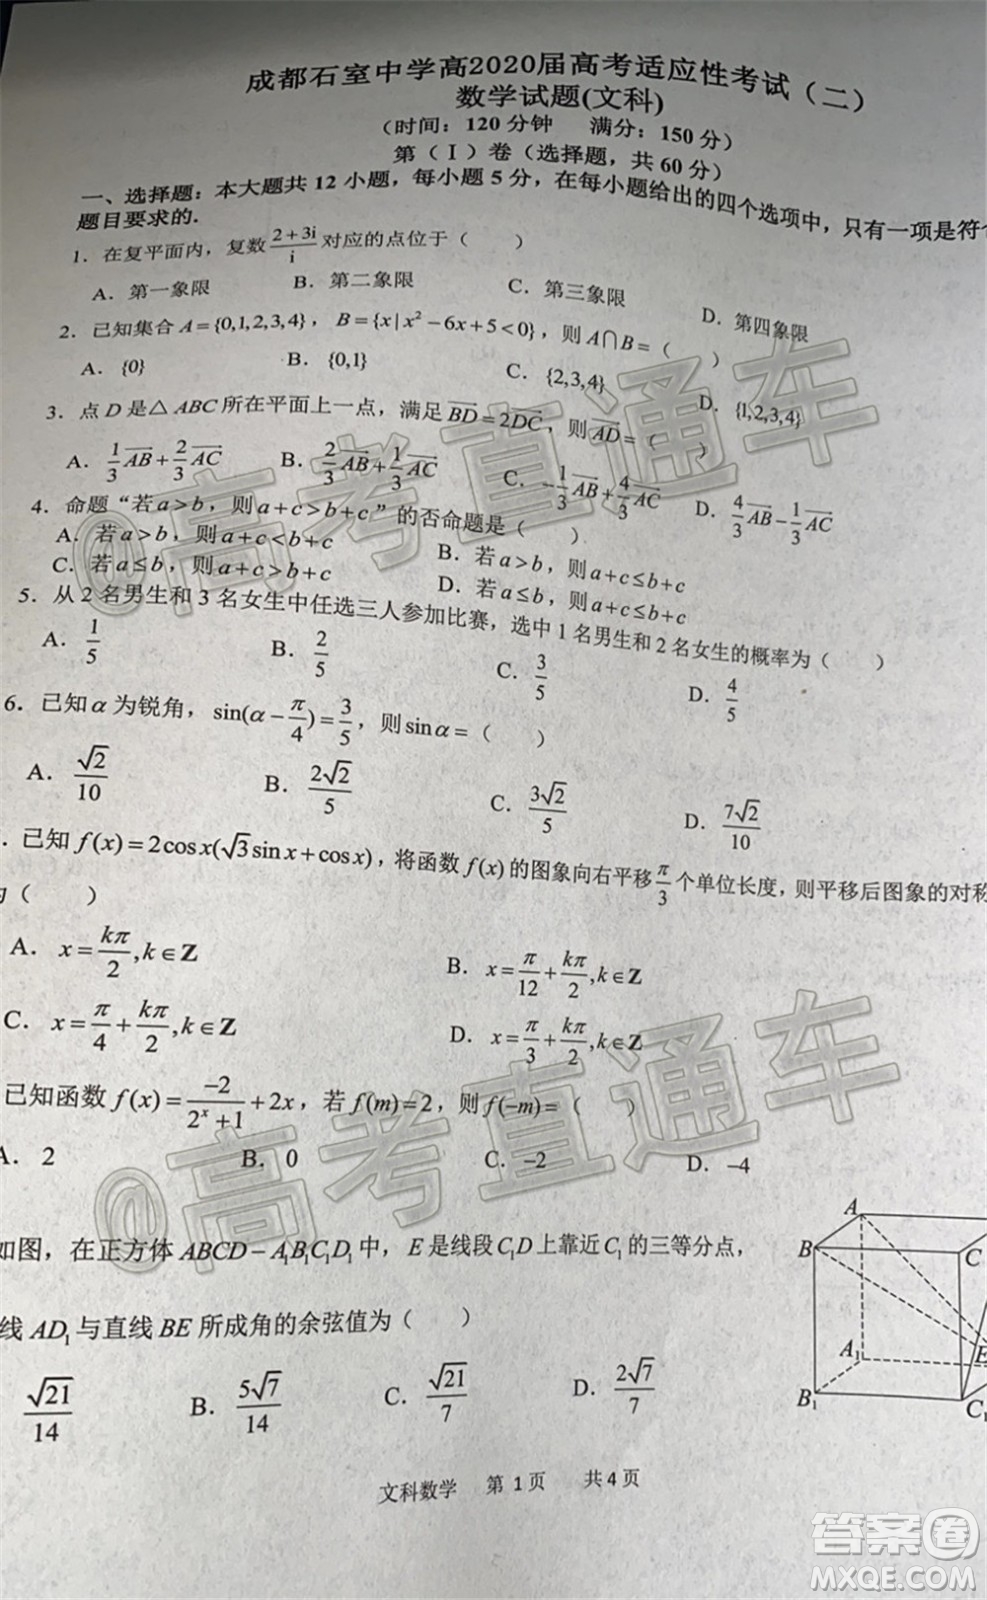 成都石室中学高2020届高考适应性考试（二）
数学试题(文科)
（时间：120 分钟 满分：150 分）
第（Ⅰ）卷（选择题，共 60 分）
一、选择题：本大题共 12 小题，每小题 5 分，在每小题给出的四个选项中，只有一项是符
题目要求的.
1. 在复平面内，复数 (2+3i)/i 对应的点位于（ ）
A. 第一象限 B. 第二象限 C. 第三象限 D. 第四象限
2. 已知集合 A={0,1,2,3,4}，B={x|x²−6x+5<0}，则 A∩B=（ ）
A. {0} B. {0,1} C. {2,3,4} D. {1,2,3,4}
3. 点 D 是△ABC 所在平面上一点，满足 \overline{BD}=2\overline{DC}，则 \overline{AD}=（ ）
A. 1/3 \overline{AB}+2/3 \overline{AC} B. 2/3 \overline{AB}+1/3 \overline{AC} C. −1/3 \overline{AB}+4/3 \overline{AC} D. 4/3 \overline{AB}−1/3 \overline{AC}
4. 命题“若 a>b，则 a+c>b+c”的否命题是（ ）
A. 若 a>b，则 a+c<b+c B. 若 a>b，则 a+c≤b+c
C. 若 a≤b，则 a+c>b+c D. 若 a≤b，则 a+c≤b+c
5. 从 2 名男生和 3 名女生中任选三人参加比赛，选中 1 名男生和 2 名女生的概率为（ ）
A. 1/5 B. 2/5 C. 3/5 D. 4/5
6. 已知 α 为锐角，sin(α−π/4)=3/5，则 sinα=（ ）
A. √2/10 B. 2√2/5 C. 3√2/5 D. 7√2/10
. 已知 f(x)=2cosx(√3sinx+cosx)，将函数 f(x) 的图象向右平移 π/3 个单位长度，则平移后图象的对称
为（ ）
A. x=kπ/2,k∈Z B. x=π/12+kπ/2,k∈Z
C. x=π/4+kπ/2,k∈Z D. x=π/3+kπ/2,k∈Z
已知函数 f(x)=−2/(2ˣ+1)+2x，若 f(m)=2，则 f(−m)=（ ）
A. 2 B. 0 C. −2 D. −4
如图，在正方体 ABCD−A₁B₁C₁D₁ 中，E 是线段 C₁D 上靠近 C₁ 的三等分点，
线 AD₁ 与直线 BE 所成角的余弦值为（ ）
√21/14 B. 5√7/14 C. √21/7 D. 2√7/7
A
B
C
A₁
E
B₁
C₁
文科数学 第 1 页 共 4 页
@高考直通车
@高考直通车
答案卷
MXQE.COM